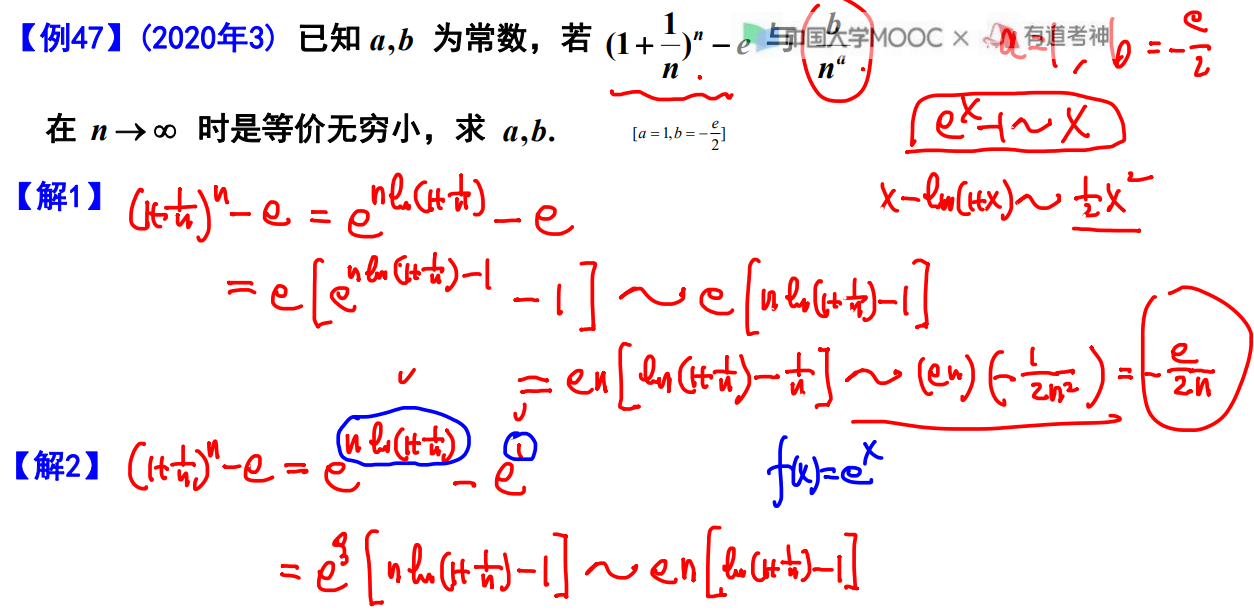 【例47】(2020年3) 已知 a,b 为常数，若 (1+1/n)^n − e 与 b/n^a
中国大学MOOC × 有道考神
a=1, b=-e/2
在 n→∞ 时是等价无穷小，求 a,b. [a=1,b=-e/2]
e^x-1~x
x-ln(1+x)~1/2 x^2
【解1】 (1+1/n)^n-e = e^{n ln(1+1/n)} - e
= e[e^{n ln(1+1/n)-1} - 1] ~ e[n ln(1+1/n)-1]
= en[ln(1+1/n)-1/n] ~ (en)(-1/2n^2) = -e/2n
【解2】 (1+1/n)^n-e = e^{n ln(1+1/n)} - e^1
f(x)=e^x
= e^ξ[n ln(1+1/n)-1] ~ en[ln(1+1/n)-1]